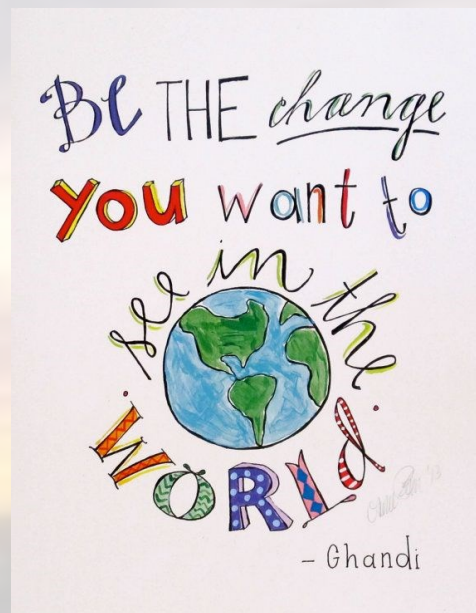 Be THE change
You want to
see in the
WORLD.
- Ghandi